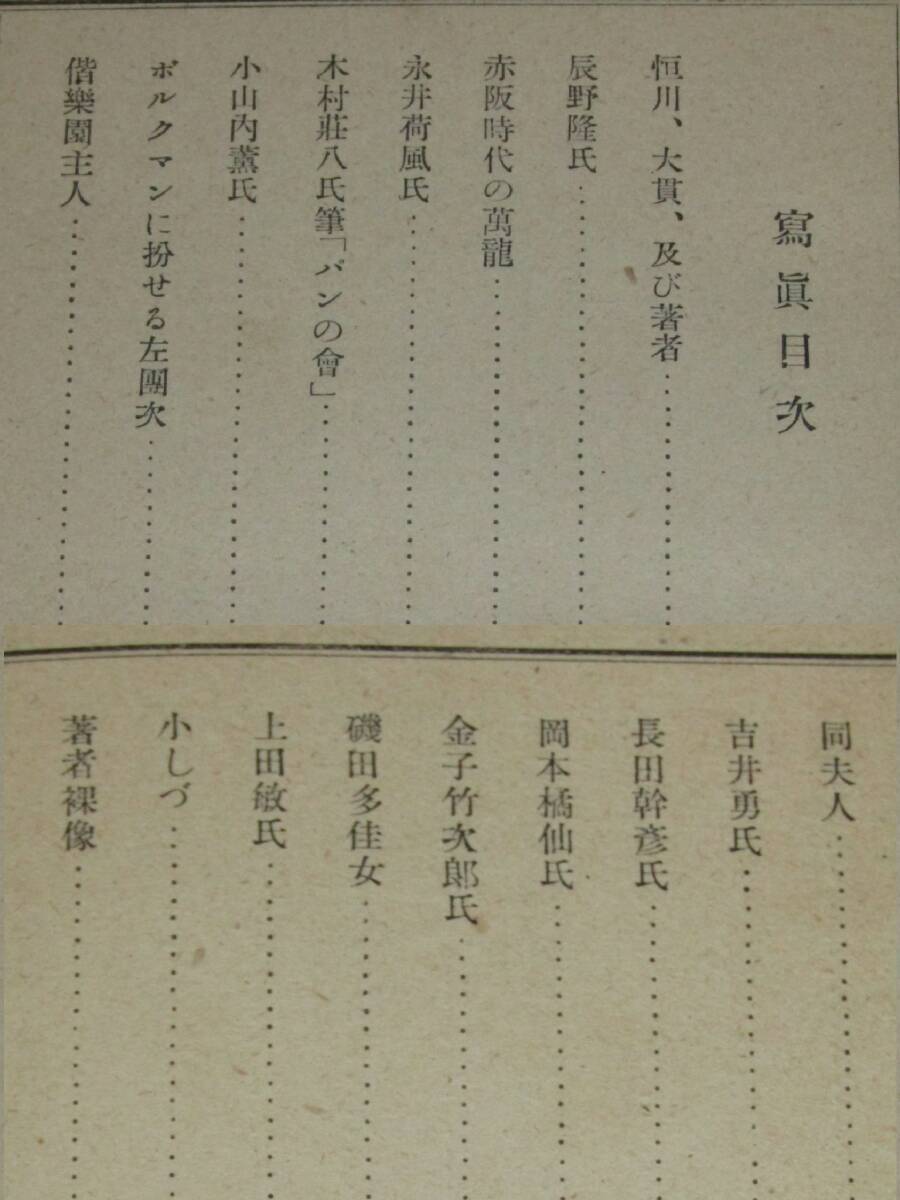 寫眞目次
恒川、大貫、及び著者
辰野隆氏
赤阪時代の萬龍
永井荷風氏
木村莊八氏筆「パンの會」
小山內薰氏
ボルクマンに扮せる左團次
偕樂園主人
同夫人
吉井勇氏
長田幹彥氏
岡本橘仙氏
金子竹次郞氏
磯田多佳女
上田敏氏
小しづ
著者裸像